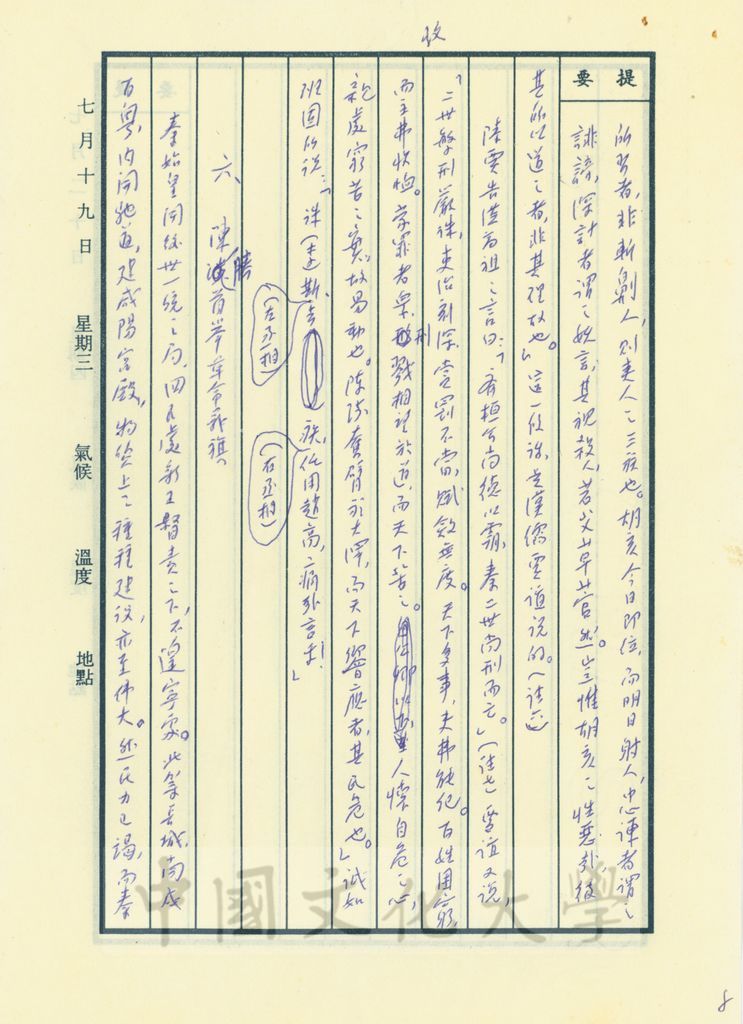 收
提要
所習者，非斬劓人，則夷人之三族也。胡亥今日即位，而明日射人，忠諫者謂之
誹謗，深計者謂之妖言，其視殺人，若艾草菅然。豈惟胡亥之性惡哉？彼
其所以道之者，非其理故也。」這一段話，是漢儒賈誼說的。（註六）
陸賈告漢高祖之言曰：「齊桓公尚德以霸，秦二世尚刑而亡。」（註七）賈誼又說，
「二世繁刑嚴誅，吏治刻深，賞罰不當，賦斂無度。天下多事，吏弗能紀。百姓困窮，
而主弗收恤。蒙罪者眾，刑戮相望於道，而天下苦之。人懷自危之心，
親處窮苦之實，故易動也。陳涉奮臂於大澤，而天下響應者，其民危也。」誠如
班固所說：「誅（李）斯、去 疾，任用趙高，痛哉言乎！」
（左丞相）
（右丞相）
六、陳勝首舉革命義旗
秦始皇開絕世一統之局，四民處新王督責之下，不遑寧處。北築長城，南戍
百粵，內開馳道，建咸陽宮殿，物質上之種種建設，亦至偉大。然民力已竭，而秦
七月十九日 星期三 氣候 溫度 地點
中國文化大學
8